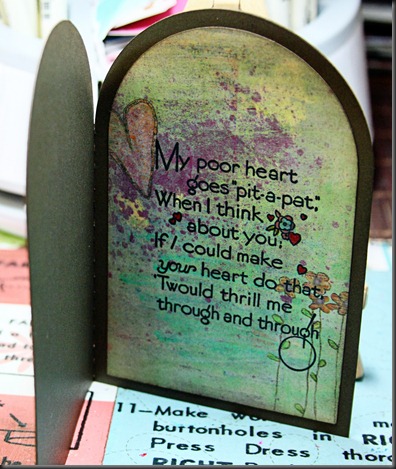 My poor heart
goes "pit-a-pat,"
When I think
about you;
If I could make
your heart do that,
'Twould thrill me
through and through
11—Make
buttonholes in R
Press Dress thoro
RIGHT